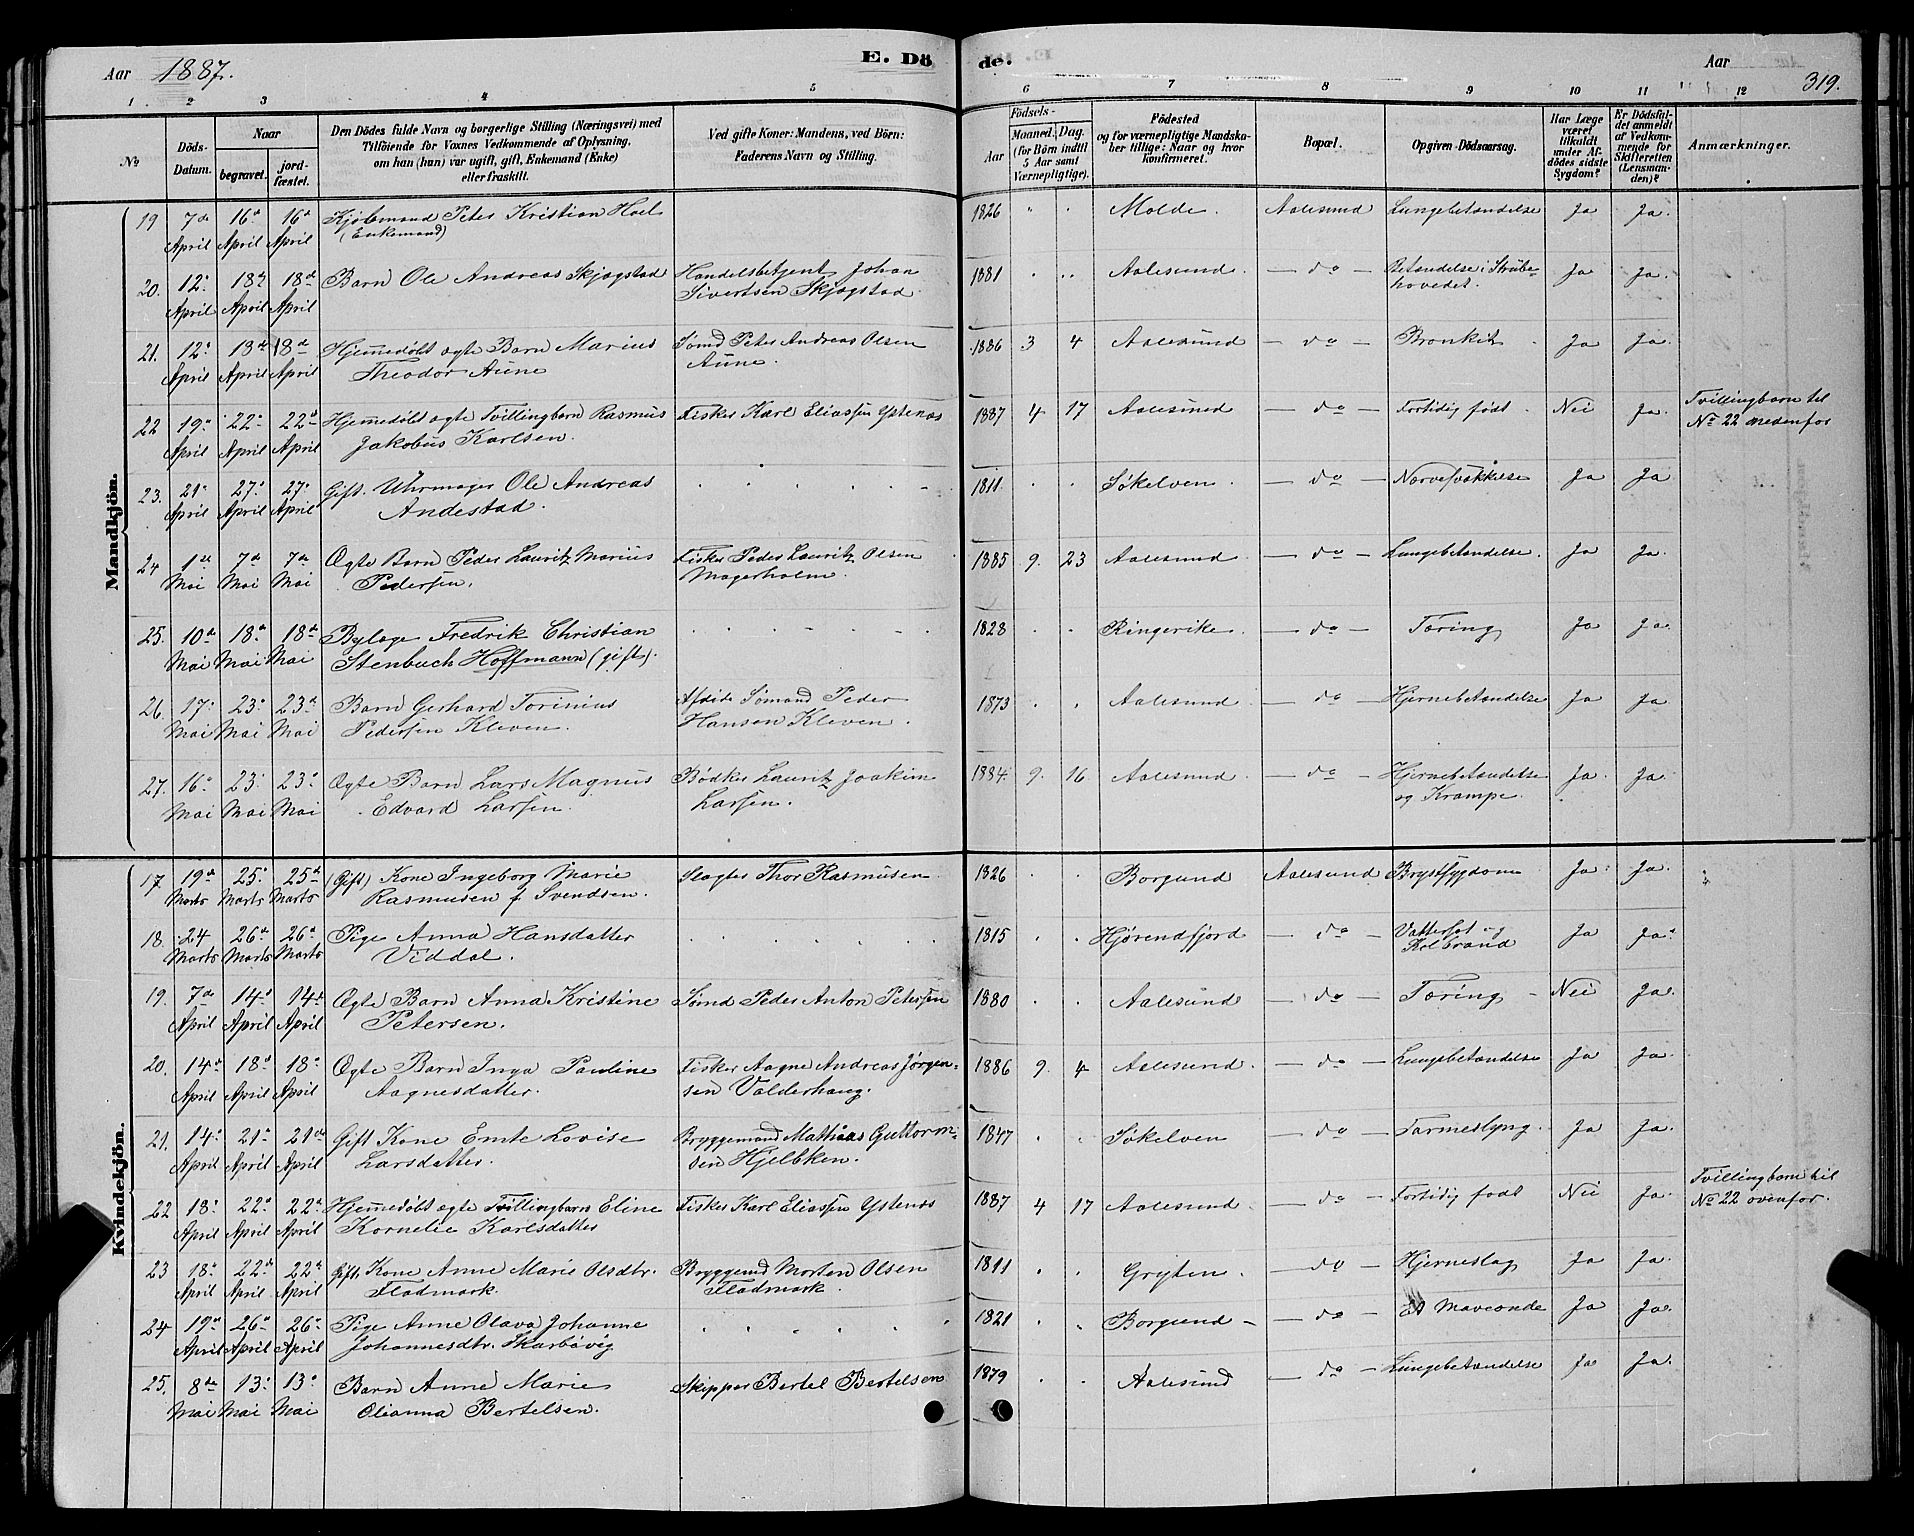 Aar 1887. E. Dö de. Aar 319.
1 2 3 4 5 6 7 8 9 10 11 12
No
Döds-Datum.
Naar
begravet.
jordfæstet.
Den Dödes fulde Navn og borgerlige Stilling (Næringsvei) med
Tilföiende for Voxnes Vedkommende af Oplysning,
om han (hun) var ugift, gift, Enkemand (Enke)
eller fraskilt.
Ved gifte Koner: Mandens, ved Börn:
Faderens Navn og Stilling.
Födsels-
Aar
Maaned. Dag.
(for Börn indtil
5 Aar samt
Værnepligtige).
Födested
og for værnepligtige Mandskaber tillige: Naar og hvor
konfirmeret.
Bopæl.
Opgiven Dödsaarsag.
Har Læge
været
tilkaldt
under Afdödes sidste
Sygdom?
Er Dödsfaldet anmeldt
af Vedkommende for
Skifteretten
(Lensmanden)?
Anmærkninger.
Mandkjön.
19 7de April 16de April 16de April Kjøbmand Peter Kristian Hoel 1826 Molde. Aalesund Lungebetændelse Ja Ja.
(Enkemand)
20. 12. April 18. April 18de April Barn Ole Andreas Skjøgstad Handelsbetjent Johan 1881 Aalesund do Betændelse i Strube- Ja Ja.
Sivertsen Skjøgstad. hovedet.
21. 12. April 18de April 18de April Hjemmedøbt ægte Barn Marius Sømd Peter Andreas Olsen 1886 3 4 Aalesund do Bronkit Ja Ja.
Theodor Aune Aune.
22 19. April 22. April 22de April Hjemmedøbt ægte Tvillingbarn Rasmus Fisker Karl Eliassen Ystenæs 1887 4 17 Aalesund do Fortidig født Nei Ja. Tvillingbarn til
Jakobus Karlsen. No 22 nedenfor
23. 21. April 27. April 27. April Gift. Uhrmager Ole Andreas 1811 Søkelven do Nervesvækkelse Ja Ja
Andestad.
24 1ste Mai 7de Mai 7de Mai Ægte Barn Peder Lauritz Marius Fisker Peder Lauritz Olsen 1885 9. 23 Aalesund do Lungebetændelse. Ja Ja.
Pedersen. Magerholm.
25. 10de Mai 18. Mai 18de Mai Bylæge Fredrik Christian 1828 Ringerike. do Tæring Ja Ja.
Stenbuch Hoffmann (gift).
26. 17. Mai 23. Mai 23de Mai Barn Gerhard Torinius Afdøde Sømand Peder 1873 Aalesund do Hjernebetændelse Ja Ja
Pedersen Kleven. Hansen Kleven.
27. 16. Mai 23. Mai 23. Mai Ægte Barn Lars Magnus Bødker Lauritz Joakim 1884. 9. 16 Aalesund do Hjernebetændelse Ja. Ja.
Edvard Larsen. Larsen. og Krampe.
Kvindekjön.
17. 19de Marts 25. Marts 25de Marts (Gift) Kone Ingeborg Marie Slagter Thor Rasmusen 1826 Borgund Aalesund Brystsygdom Ja. Ja.
Rasmusen f Svendsen.
18. 24 Marts 26de Marts 26de Marts Pige Anna Hansdatter 1815 Hjørendfjord do Vattersot og Ja Ja.
Viddal. Kolbrand
19. 7de April 14de April 14de April Ægte Barn Anna Kristine Sømd Peder Anton Petersen 1880 Aalesund do Tæring Nei Ja.
Petersen.
20. 14de April 18. April 18. April Ægte Barn Inga Pauline Fisker Aagne Andreas Jørgen- 1886 9. 4 Aalesund. do Lungebetændelse Ja Ja.
Aagnesdatter. sen Valderhaug.
21. 14. April 21. April 21de April Gift Kone Emte Lovise Bryggemand Mathias Guttorm- 1847 Søkelven do Tarmeslyng. Ja Ja.
Larsdatter. sen Hjelbken.
22 18. April 22. April 22de April Hjemmedøbt ægte Tvillingbarn Eline Fisker Karl Eliassen Ystenæs 1887 4 17 Aalesund. do Fortidig født Nei Ja. Tvillingbarn til
Kornelie Karlsdatter No 22 ovenfor.
23 18. April 22de April 22de April Gift Kone Anne Marie Olsdtr. Bryggemd Morten Olsen 1811 Gryten. do Hjerneslag Ja Ja.
Fladmark. Fladmark.
24 19de April 26. April 26. April Pige Anne Olava Johanne 1821 Borgund do Et Maveonde Ja Ja.
Johannesdtr. Skarbøvig
25. 8de Mai 13. Mai 13. Mai Barn Anne Marie Skipper Bertel Bertelsen 1879 Aalesund do Lungebetændelse Ja Ja.
Olianna Bertelsen.